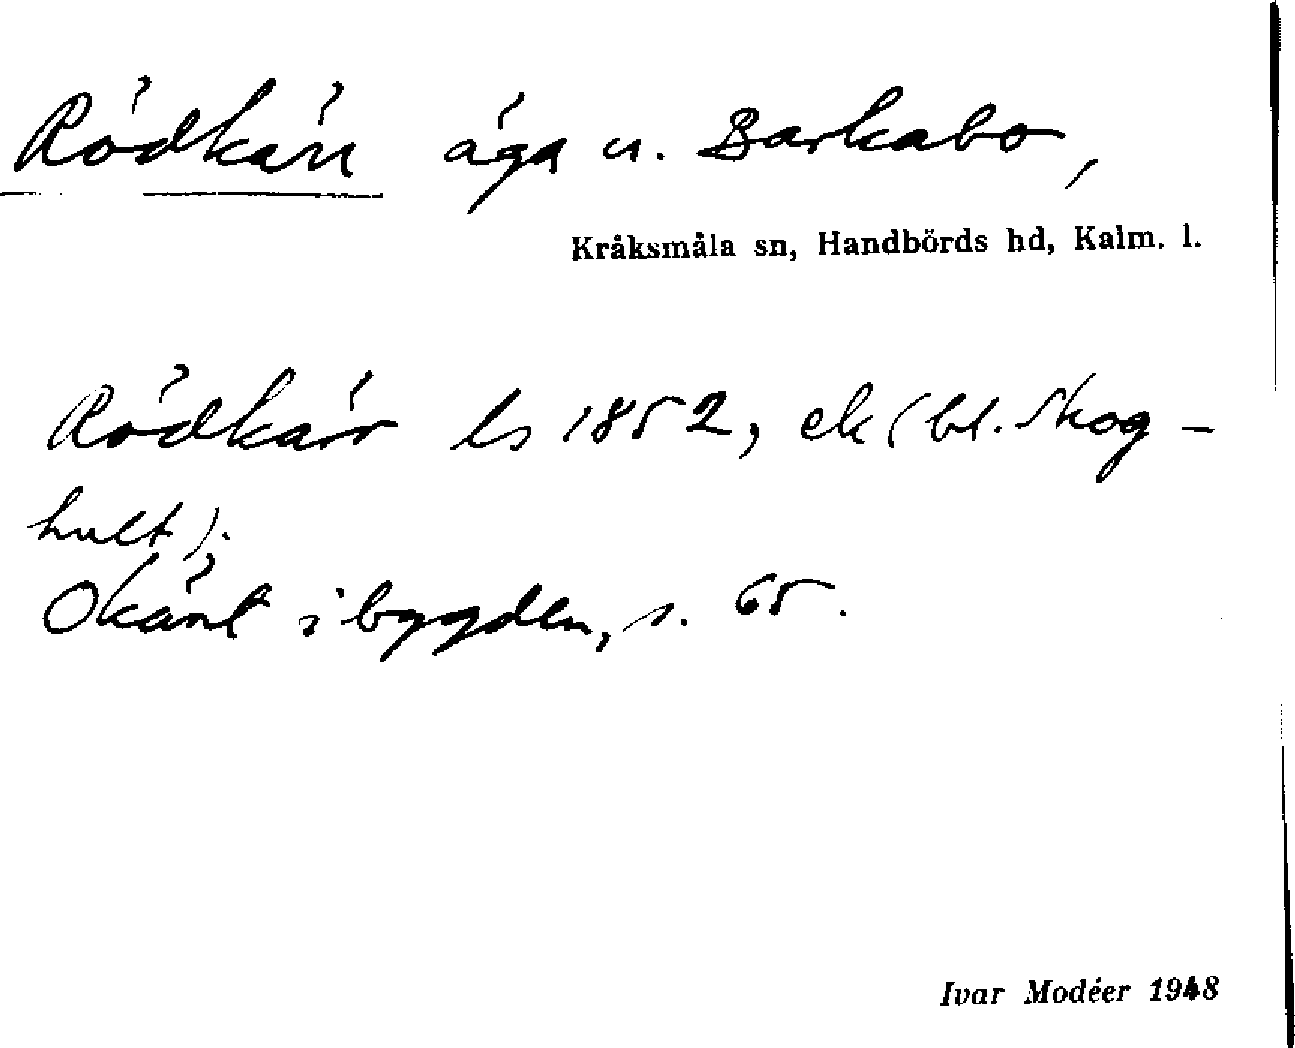 Rödkärr äga u. Barkabo,
Kråksmåla sn, Handbörds hd, Kalm. l.
Rödkärr ls 1852, ek (bl. Skog-
hult).
Okänt i bygden, s. 65.
Ivar Modéer 1948